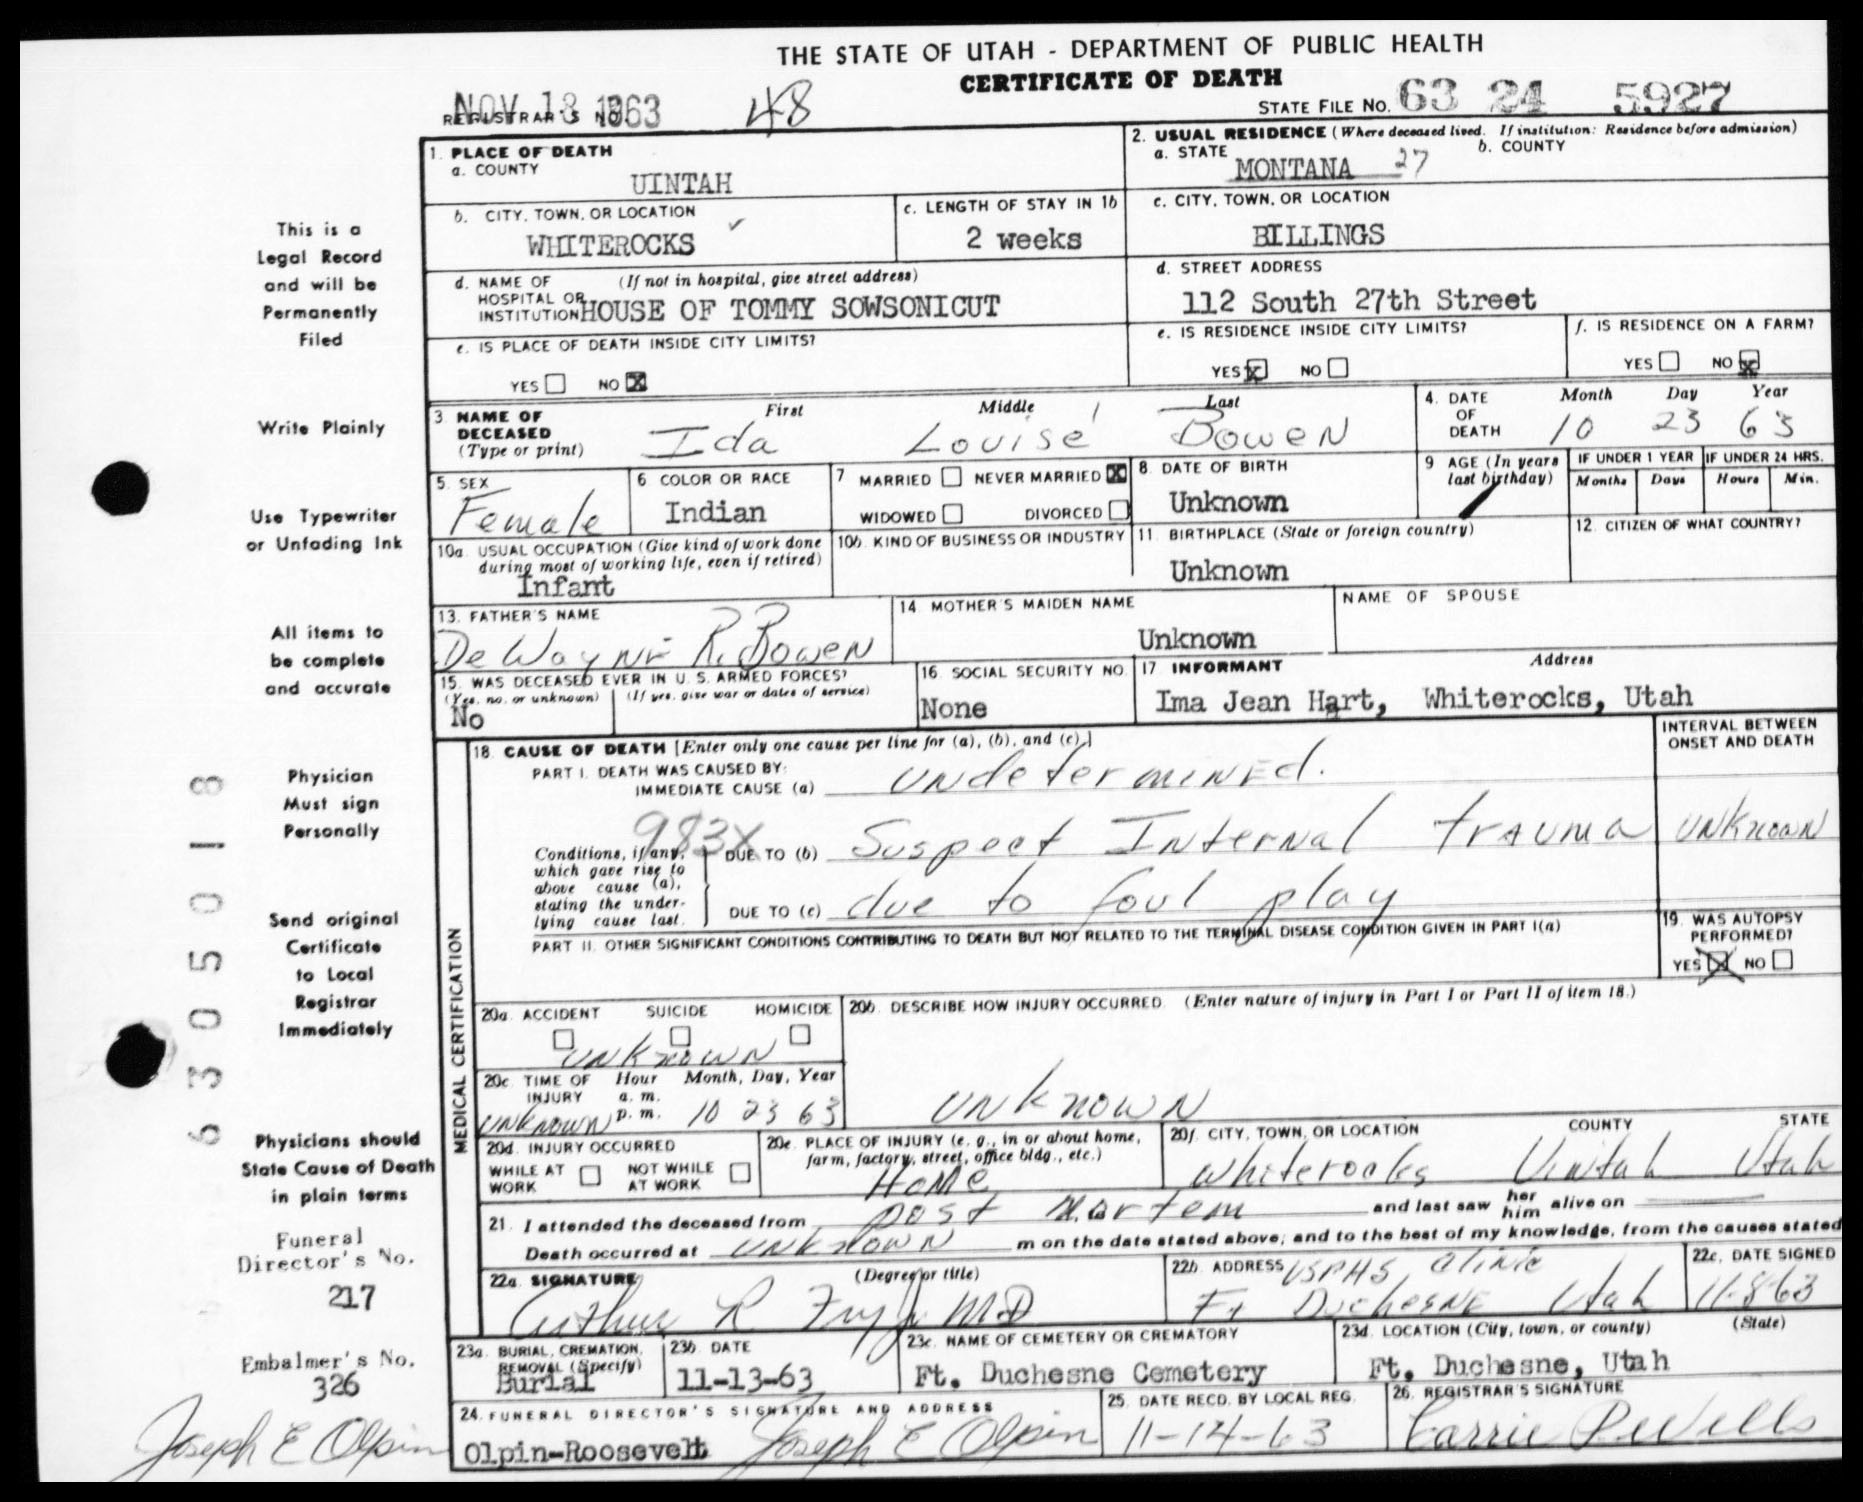 THE STATE OF UTAH - DEPARTMENT OF PUBLIC HEALTH
CERTIFICATE OF DEATH
NOV 18 1963
REGISTRAR'S NO. 48
STATE FILE NO. 63 24 5927
1. PLACE OF DEATH
a. COUNTY
UINTAH
2. USUAL RESIDENCE (Where deceased lived. If institution: Residence before admission)
a. STATE MONTANA 27 b. COUNTY
b. CITY, TOWN, OR LOCATION
WHITEROCKS
c. LENGTH OF STAY IN 1b
2 weeks
c. CITY, TOWN, OR LOCATION
BILLINGS
d. NAME OF HOSPITAL OR INSTITUTION (If not in hospital, give street address)
HOUSE OF TOMMY SOWSONICUT
d. STREET ADDRESS
112 South 27th Street
e. IS PLACE OF DEATH INSIDE CITY LIMITS?
YES NO X
e. IS RESIDENCE INSIDE CITY LIMITS?
YES X NO
f. IS RESIDENCE ON A FARM?
YES NO X
3 NAME OF DECEASED (Type or print)
First Middle Last
Ida Louise Bowen
4. DATE OF DEATH
Month Day Year
10 23 63
5. SEX
Female
6 COLOR OR RACE
Indian
7 MARRIED NEVER MARRIED X
WIDOWED DIVORCED
8. DATE OF BIRTH
Unknown
9 AGE (In years last birthday)
IF UNDER 1 YEAR
Months Days
IF UNDER 24 HRS.
Hours Min.
10a. USUAL OCCUPATION (Give kind of work done during most of working life, even if retired)
Infant
10b. KIND OF BUSINESS OR INDUSTRY
11. BIRTHPLACE (State or foreign country)
Unknown
12. CITIZEN OF WHAT COUNTRY?
13. FATHER'S NAME
De Wayne R. Bowen
14 MOTHER'S MAIDEN NAME
Unknown
NAME OF SPOUSE
15. WAS DECEASED EVER IN U. S. ARMED FORCES?
(Yes, no, or unknown) (If yes, give war or dates of service)
No
16 SOCIAL SECURITY NO.
None
17 INFORMANT Address
Ima Jean Hart, Whiterocks, Utah
MEDICAL CERTIFICATION
18. CAUSE OF DEATH [Enter only one cause per line for (a), (b), and (c).]
INTERVAL BETWEEN ONSET AND DEATH
PART I. DEATH WAS CAUSED BY:
IMMEDIATE CAUSE (a) undetermined.
983X
Conditions, if any, which gave rise to above cause (a), stating the underlying cause last.
DUE TO (b) Suspect Internal trauma unknown
DUE TO (c) due to foul play
PART II. OTHER SIGNIFICANT CONDITIONS CONTRIBUTING TO DEATH BUT NOT RELATED TO THE TERMINAL DISEASE CONDITION GIVEN IN PART I(a)
19. WAS AUTOPSY PERFORMED?
YES X NO
20a. ACCIDENT SUICIDE HOMICIDE
unknown
20b. DESCRIBE HOW INJURY OCCURRED. (Enter nature of injury in Part I or Part II of item 18.)
unknown
20c. TIME OF INJURY Hour a. m. p. m. Month, Day, Year
unknown 10 23 63
20d. INJURY OCCURRED
WHILE AT WORK NOT WHILE AT WORK
20e. PLACE OF INJURY (e. g., in or about home, farm, factory, street, office bldg., etc.)
Home
20f. CITY, TOWN, OR LOCATION COUNTY STATE
Whiterocks Uintah Utah
21. I attended the deceased from post mortem and last saw her him alive on
Death occurred at unknown m on the date stated above; and to the best of my knowledge, from the causes stated
22a. SIGNATURE (Degree or title)
Arthur R Fry Jr MD
22b. ADDRESS
USPHS Clinic
Ft Duchesne Utah
22c. DATE SIGNED
11-8-63
23a. BURIAL, CREMATION, REMOVAL (Specify)
Burial
23b. DATE
11-13-63
23c. NAME OF CEMETERY OR CREMATORY
Ft. Duchesne Cemetery
23d. LOCATION (City, town, or county) (State)
Ft. Duchesne, Utah
24. FUNERAL DIRECTOR'S SIGNATURE AND ADDRESS
Olpin-Roosevelt Joseph E Olpin
25. DATE RECD. BY LOCAL REG.
11-14-63
26. REGISTRAR'S SIGNATURE
Carrie P Wills
This is a
Legal Record
and will be
Permanently
Filed
Write Plainly
Use Typewriter
or Unfading Ink
All items to
be complete
and accurate
Physician
Must sign
Personally
Send original
Certificate
to Local
Registrar
Immediately
Physicians should
State Cause of Death
in plain terms
Funeral
Director's No.
217
Embalmer's No.
326
Joseph E Olpin
63050 18